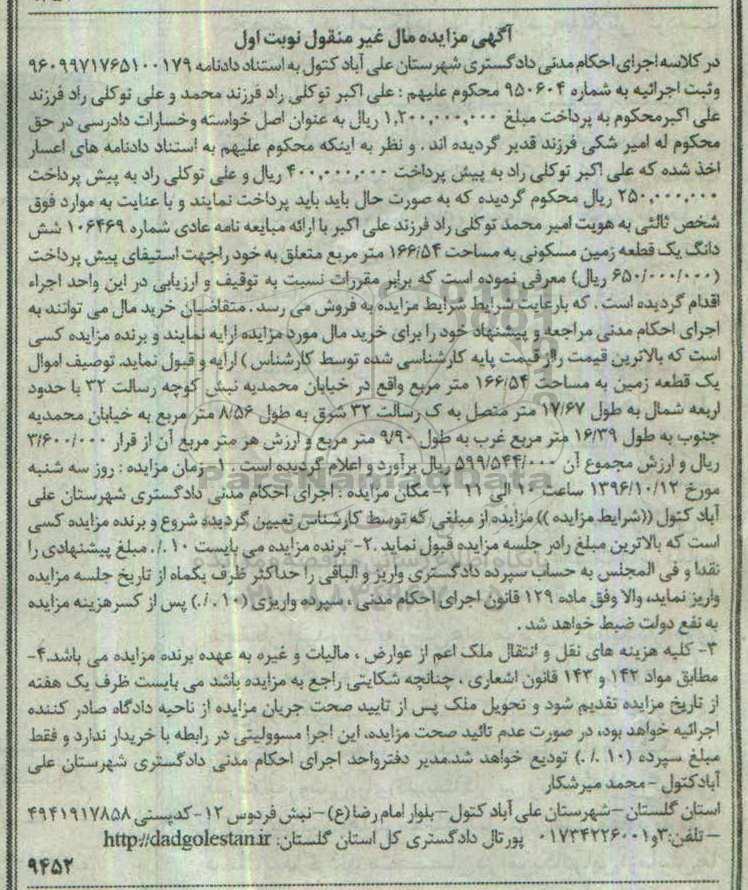 آگهی مزایده مال غیر منقول نوبت اول
در کلاسه اجرای احکام مدنی دادگستری شهرستان علی آباد کتول به استناد دادنامه ۹۶۰۹۹۷۱۷۶۵۱۰۰۱۷۹
وثبت اجرائیه به شماره ۹۵۰۶۰۴ محکوم علیهم : علی اکبر توکلی راد فرزند محمد و علی توکلی راد فرزند
علی اکبرمحکوم به پرداخت مبلغ ۱,۲۰۰,۰۰۰,۰۰۰ ریال به عنوان اصل خواسته وخسارات دادرسی در حق
محکوم له امیر شکی فرزند قدیر گردیده اند . و نظر به اینکه محکوم علیهم به استناد دادنامه های اعسار
اخذ شده که علی اکبر توکلی راد به پیش پرداخت ۴۰۰,۰۰۰,۰۰۰ ریال و علی توکلی راد به پیش پرداخت
۲۵۰,۰۰۰,۰۰۰ ریال محکوم گردیده که به صورت حال باید باید پرداخت نمایند و با عنایت به موارد فوق
شخص ثالثی به هویت امیر محمد توکلی راد فرزند علی اکبر با ارائه مبایعه نامه عادی شماره ۱۰۶۴۶۹ شش
دانگ یک قطعه زمین مسکونی به مساحت ۱۶۶/۵۴ متر مربع متعلق به خود راجهت استیفای پیش پرداخت
(۶۵۰/۰۰۰/۰۰۰ ریال) معرفی نموده است که برابر مقررات نسبت به توقیف و ارزیابی در این واحد اجراء
اقدام گردیده است . که بارعایت شرایط شرایط مزایده به فروش می رسد . متقاضیان خرید مال می توانند به
اجرای احکام مدنی مراجعه و پیشنهاد خود را برای خرید مال مورد مزایده ارایه نمایند و برنده مزایده کسی
است که بالاترین قیمت رااز قیمت پایه کارشناسی شده توسط کارشناس ) ارایه و قبول نماید. توصیف اموال
یک قطعه زمین به مساحت ۱۶۶/۵۴ متر مربع واقع در خیابان محمدیه نبش کوچه رسالت ۳۲ با حدود
اربعه شمال به طول ۱۷/۶۷ متر متصل به ک رسالت ۳۲ شرق به طول ۸/۵۶ متر مربع به خیابان محمدیه
جنوب به طول ۱۶/۳۹ متر مربع غرب به طول ۹/۹۰ متر مربع و ارزش هر متر مربع آن از قرار ۳/۶۰۰/۰۰۰
ریال و ارزش مجموع آن ۵۹۹/۵۴۴/۰۰۰ ریال برآورد و اعلام گردیده است . ۱- زمان مزایده : روز سه شنبه
مورخ ۱۳۹۶/۱۰/۱۲ ساعت ۱۰ الی ۱۱ ۲- مکان مزایده : اجرای احکام مدنی دادگستری شهرستان علی
آباد کتول ((شرایط مزایده )) مزایده از مبلغی که توسط کارشناس تعیین گردیده شروع و برنده مزایده کسی
است که بالاترین مبلغ رادر جلسه مزایده قبول نماید .۲- برنده مزایده می بایست ۱۰ ./. مبلغ پیشنهادی را
نقدا و فی المجلس به حساب سپرده دادگستری واریز و الباقی را حداکثر ظرف یکماه از تاریخ جلسه مزایده
واریز نماید، والا وفق ماده ۱۲۹ قانون اجرای احکام مدنی ، سپرده واریزی (۱۰ ./.) پس از کسرهزینه مزایده
به نفع دولت ضبط خواهد شد .
۳- کلیه هزینه های نقل و انتقال ملک اعم از عوارض ، مالیات و غیره به عهده برنده مزایده می باشد.۴-
مطابق مواد ۱۴۲ و ۱۴۳ قانون اشعاری ، چنانچه شکایتی راجع به مزایده باشد می بایست ظرف یک هفته
از تاریخ مزایده تقدیم شود و تحویل ملک پس از تایید صحت جریان مزایده از ناحیه دادگاه صادر کننده
اجرائیه خواهد بود، در صورت عدم تائید صحت مزایده، این اجرا مسوولیتی در رابطه با خریدار ندارد و فقط
مبلغ سپرده (۱۰ ./.) تودیع خواهد شد.مدیر دفترواحد اجرای احکام مدنی دادگستری شهرستان علی
آبادکتول - محمد میرشکار
استان گلستان –شهرستان علی آباد کتول –بلوار امام رضا (ع) –نبش فردوس ۱۲- کدپستی ۴۹۴۱۹۱۷۸۵۸
– تلفن:۳و۰۱۷۳۴۲۲۶۰۰۱ پورتال دادگستری کل استان گلستان: http://dadgolestan.ir
۹۴۵۲
ParsNamadData